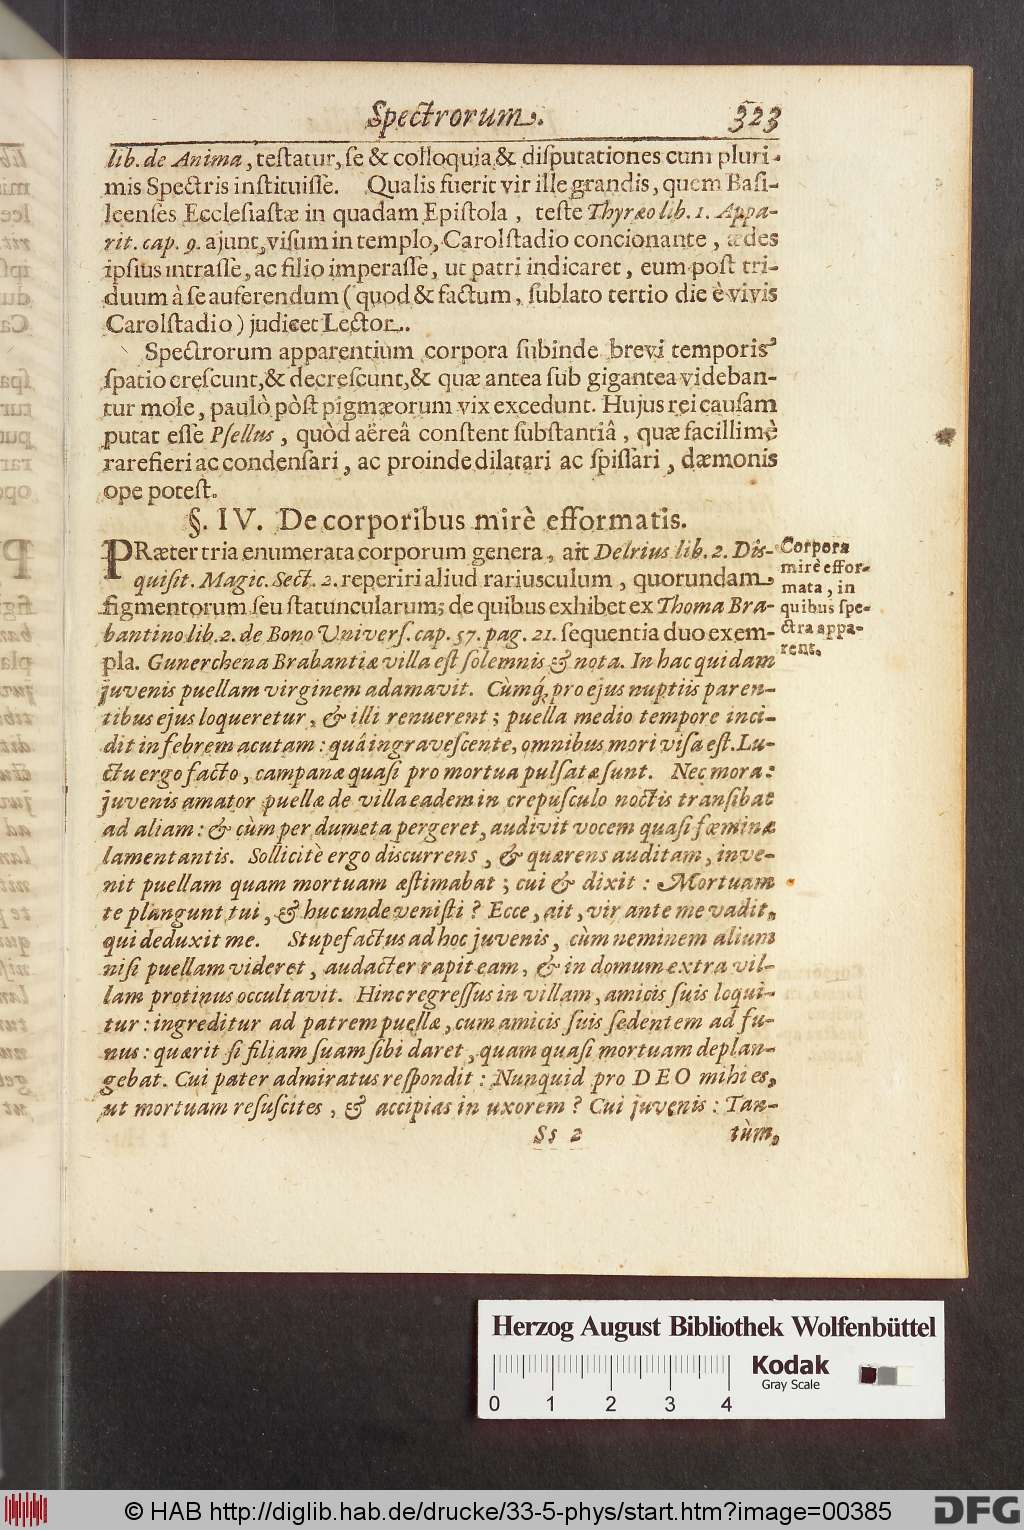 Spectrorum. 323
lib. de Anima, testatur, se & colloquia & disputationes cum pluri-
mis Spectris instituisse. Qualis fuerit vir ille grandis, quem Basi-
leenses Ecclesiastæ in quadam Epistola, teste Thyræo lib. 1. Appa-
rit. cap. 9. ajunt, visum in templo, Carolstadio concionante, ædes
ipsius intrasse, ac filio imperasse, ut patri indicaret, eum post tri-
duum à se auferendum (quod & factum, sublato tertio die è vivis
Carolstadio) judicet Lector.
Spectrorum apparentium corpora subinde brevi temporis
spatio crescunt, & decrescunt, & quæ antea sub gigantea videban-
tur mole, paulò pòst pigmæorum vix excedunt. Hujus rei causam
putat esse Psellus, quòd aëreâ constent substantiâ, quæ facillimè
rarefieri ac condensari, ac proinde dilatari ac spissari, dæmonis
ope potest.
§. IV. De corporibus mirè efformatis.
PRæter tria enumerata corporum genera, ait Delrius lib. 2. Dis-
quisit. Magic. Sect. 2. reperiri aliud rariusculum, quorundam
figmentorum seu statuncularum; de quibus exhibet ex Thoma Bra-
bantino lib. 2. de Bono Univers. cap. 57. pag. 21. sequentia duo exem-
pla. Gunerchena Brabantiæ villa est solemnis & nota. In hac quidam
juvenis puellam virginem adamavit. Cùmq́; pro ejus nuptiis paren-
tibus ejus loqueretur, & illi renuerent; puella medio tempore inci-
dit in febrem acutam: quâ ingravescente, omnibus mori visa est. Lu-
ctu ergo facto, campanæ quasi pro mortua pulsatæ sunt. Nec mora:
juvenis amator puellæ de villa eadem in crepusculo noctis transibat
ad aliam: & cùm per dumeta pergeret, audivit vocem quasi fœminæ
lamentantis. Sollicitè ergo discurrens, & quærens auditam, inve-
nit puellam quam mortuam æstimabat; cui & dixit: Mortuam
te plangunt tui, & huc unde venisti? Ecce, ait, vir ante me vadit,
qui deduxit me. Stupefactus ad hoc juvenis, cùm neminem alium
nisi puellam videret, audacter rapit eam, & in domum extra vil-
lam protinus occultavit. Hinc regressus in villam, amicis suis loqui-
tur: ingreditur ad patrem puellæ, cum amicis suis sedentem ad fu-
nus: quærit si filiam suam sibi daret, quam quasi mortuam deplan-
gebat. Cui pater admiratus respondit: Nunquid pro DEO mihi es,
ut mortuam resuscites, & accipias in uxorem? Cui juvenis: Tan-
Ss 2 tùm,
Corpora
mirè effor-
mata, in
quibus spe-
ctra appa-
rent.
Herzog August Bibliothek Wolfenbüttel
Kodak
Gray Scale
0 1 2 3 4
© HAB http://diglib.hab.de/drucke/33-5-phys/start.htm?image=00385
DFG